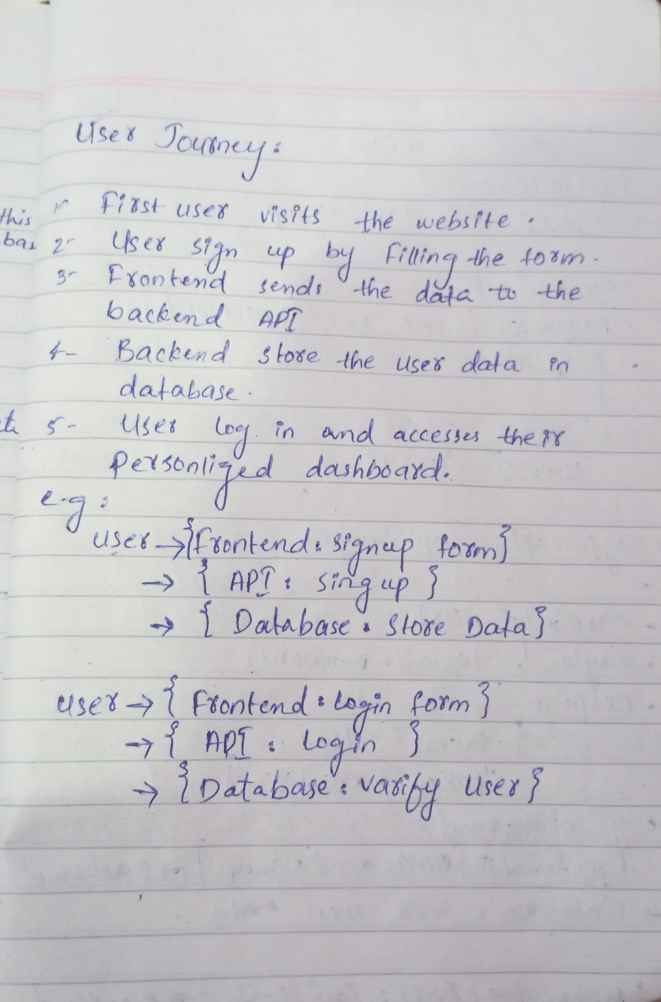 User Journey:
this 1- First user visits the website.
bas 2- User sign up by filling the form.
3- Frontend sends the data to the
backend API
4- Backend store the user data in
database.
5- User log in and accesses their
Personliged dashboard.
e.g:
user → {Frontend: signup form}
→ { API: singup }
→ { Database: Store Data}
user → { Frontend: login form }
→ { API: login }
→ { Database: varify user }